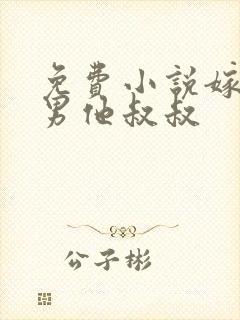 免費小說嫁
男他叔叔
公子彬